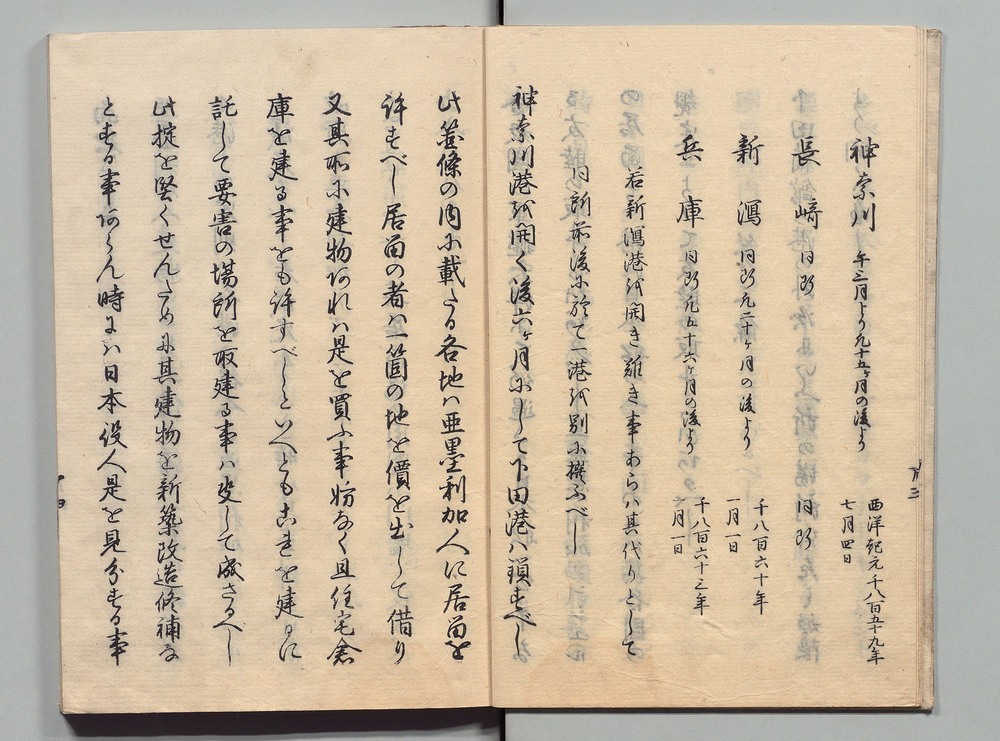 神奈川 午三月より凡十五ヶ月の後より 西洋紀元千八百五十九年
七月四日
長崎 同断 同断
新潟 同断凡二十ヶ月の後より 千八百六十年
一月一日
兵庫 同断凡五十六ヶ月の後より 千八百六十三年
一月一日
若新潟港を開き難き事あらハ其代りとして
同所前後に於て一港を別に撰ふへし
神奈川港を開く後六ヶ月にして下田港ハ鎖すへし
此箇條の内に載たる各地ハ亜墨利加人に居留を
許すへし居留の者ハ一箇の地を價を出して借り
又其所に建物あれハ是を買ふ事妨なく且住宅倉
庫を建る事をも許すへしといへとも是を建るに
託して要害の場所を取建る事ハ決して成さるへし
此掟を堅くせんために其建物を新築改造修補な
とする事あらん時にハ日本役人是を見分する事